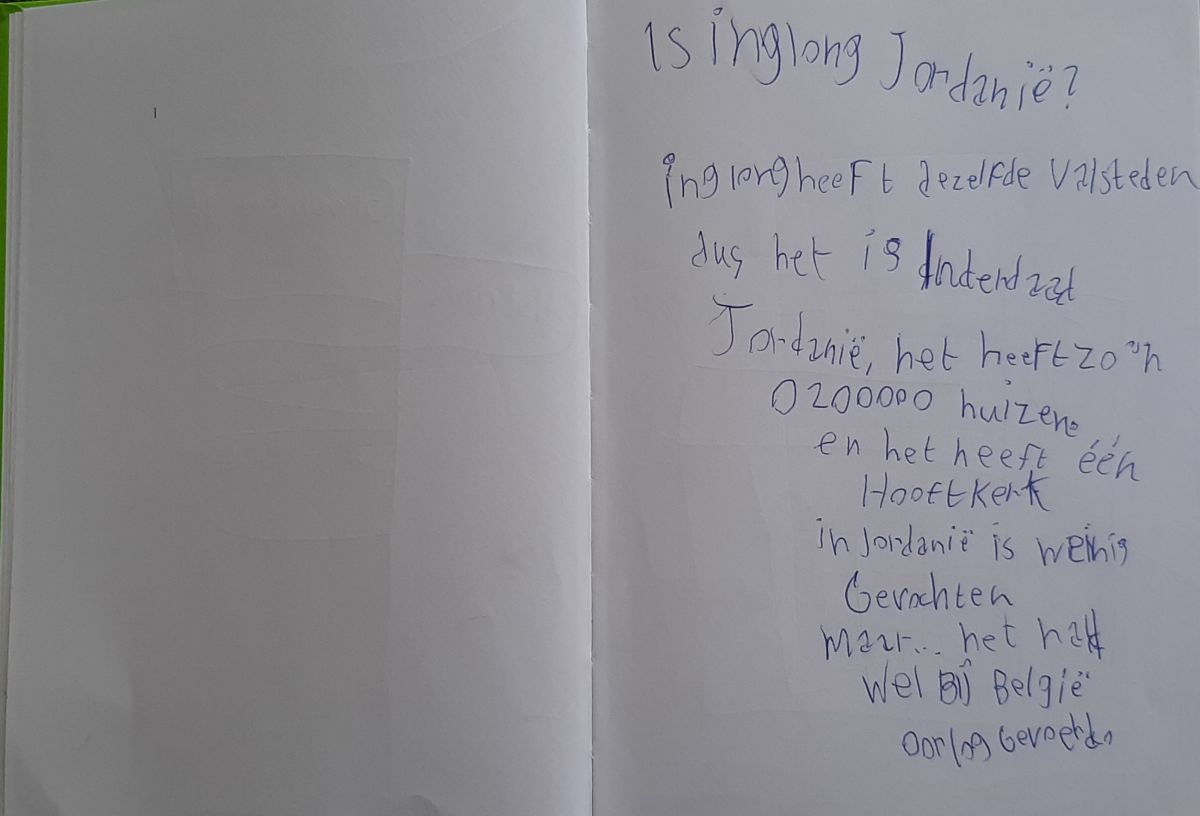 Is inglong Jordanië?
inglong heeft dezelfde Valsteden
dus het is Inderdaad
Jordanië, het heeft zo'n
0200000 huizen.
en het heeft één
Hooftkerk
in Jordanië is weinig
Gevochten
maar... het had
wel Bij België
oorlog Gevoerd.